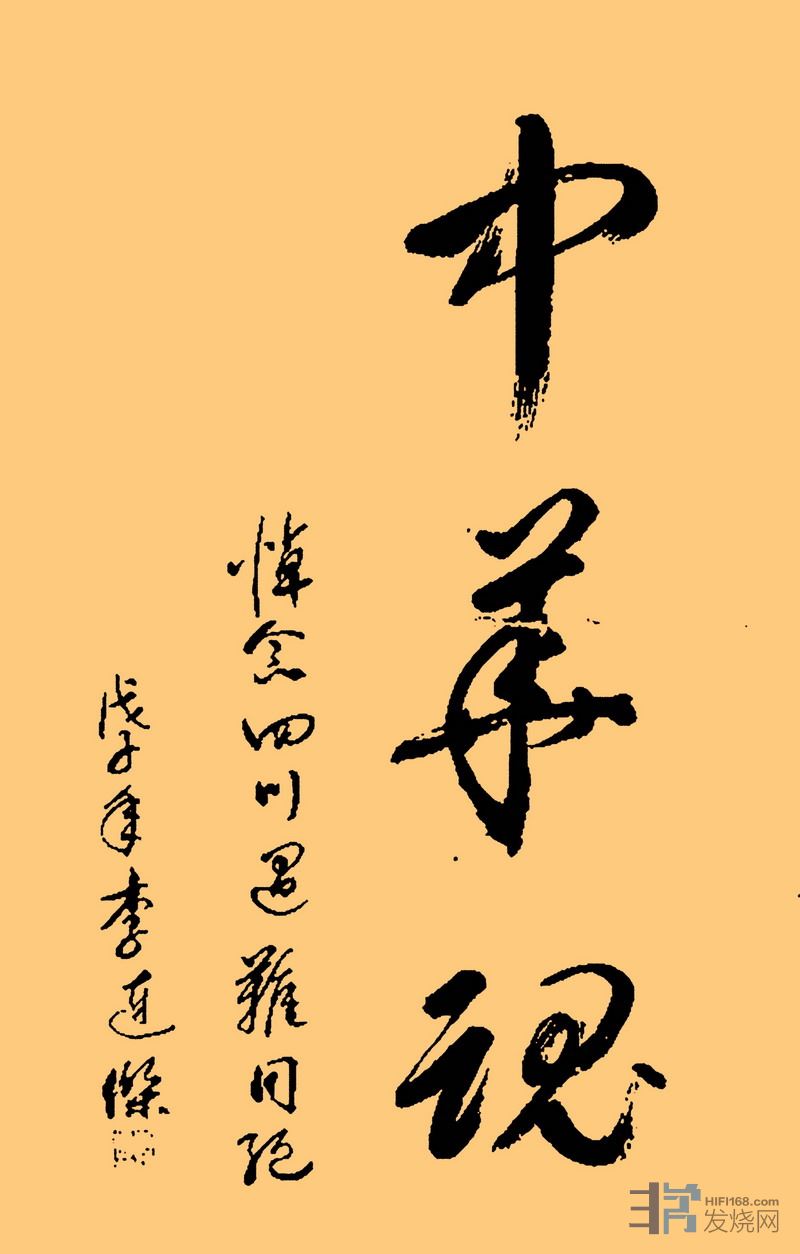 中華魂
悼念四川遇難同胞
戊子年李連傑
HIFI168.com
发烧网